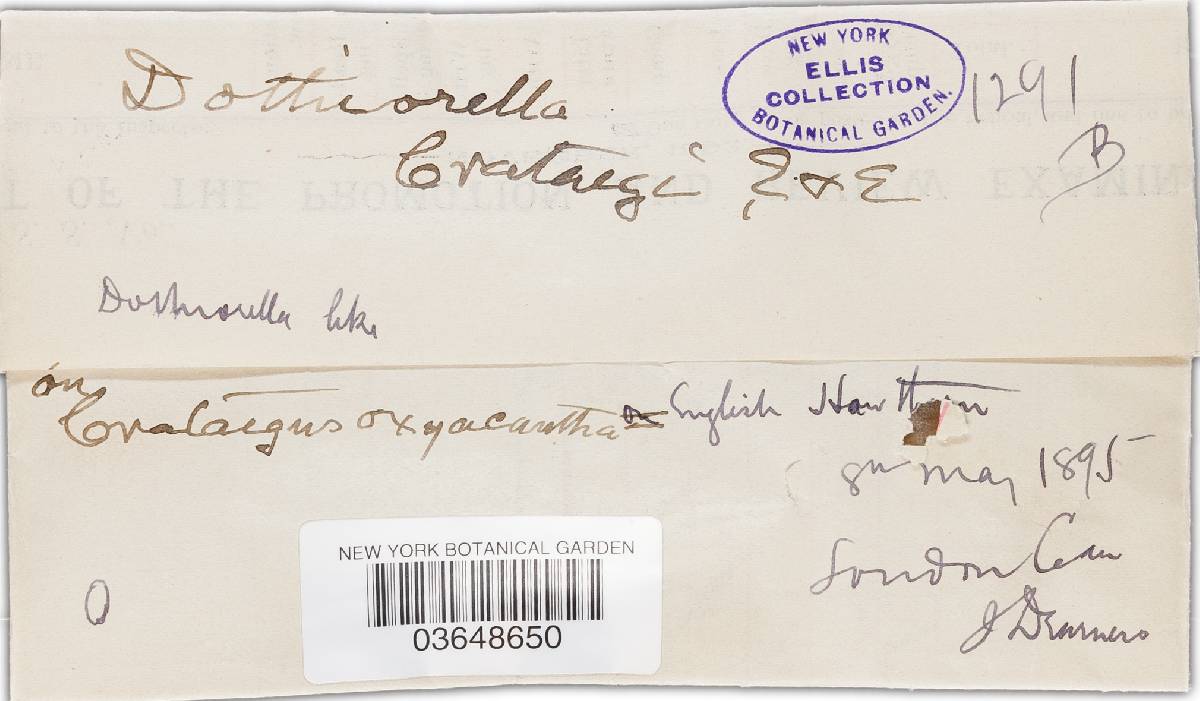 Dothiorella
Crataegi E & E
NEW YORK
ELLIS
COLLECTION
BOTANICAL GARDEN.
1291
B
Dothiorella like
on
Crataegus oxyacantha or English Hawthorn
8th May 1895
London Can
J Dearness
NEW YORK BOTANICAL GARDEN
03648650
0